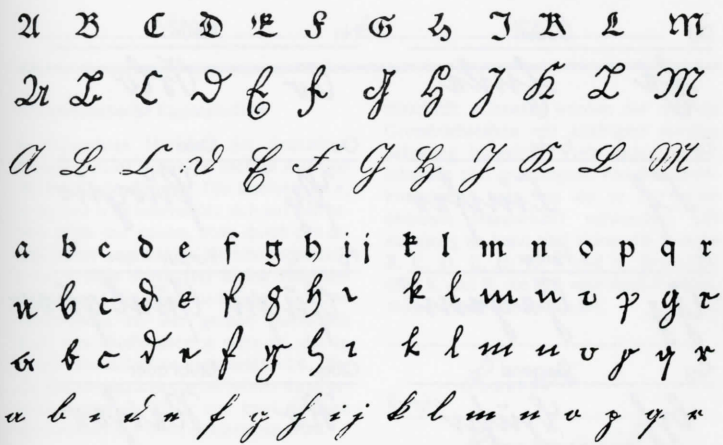 A B C D E F G H I K L M
A B C D E F G H J K L M
A B C D E F G H J K L M
a b c d e f g h i j k l m n o p q r
a b c d e f g h i k l m n o p q r
a b c d e f g h i k l m n o p q r
a b c d e f g h i j k l m n o p q r